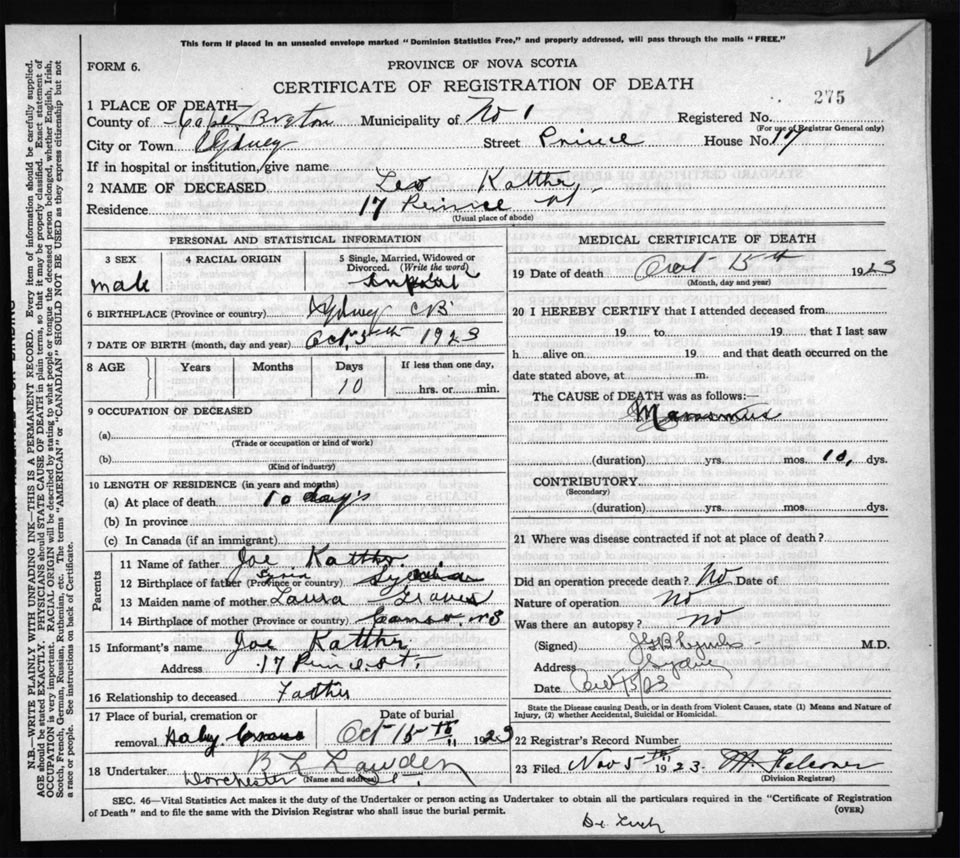 This form if placed in an unsealed envelope marked "Dominion Statistics Free," and properly addressed, will pass through the mails "FREE."
FORM 6.
PROVINCE OF NOVA SCOTIA
CERTIFICATE OF REGISTRATION OF DEATH
275
1 PLACE OF DEATH—
County of Cape Breton Municipality of No 1 Registered No.
(For use of Registrar General only)
City or Town Sydney Street Prince House No. 17
If in hospital or institution, give name
2 NAME OF DECEASED Leo Katthr
Residence 17 Prince St
(Usual place of abode)
PERSONAL AND STATISTICAL INFORMATION
3 SEX 4 RACIAL ORIGIN 5 Single, Married, Widowed or Divorced. (Write the word)
male
6 BIRTHPLACE (Province or country) Sydney CB
7 DATE OF BIRTH (month, day and year) Oct 5th 1923
8 AGE Years Months Days If less than one day,
10 hrs. or min.
9 OCCUPATION OF DECEASED
(a)
(Trade or occupation or kind of work)
(b)
(Kind of industry)
10 LENGTH OF RESIDENCE (in years and months)
(a) At place of death 10 days
(b) In province
(c) In Canada (if an immigrant)
Parents
11 Name of father Joe Katthr
12 Birthplace of father (Province or country) Syria
13 Maiden name of mother Laura Graves
14 Birthplace of mother (Province or country) Canso NS
15 Informant's name Joe Katthr
Address 17 Prince St.
16 Relationship to deceased Father
17 Place of burial, cremation or removal Holy Cross
Date of burial
Oct 15th 1923
18 Undertaker
(Name and address)
Dorchester St
MEDICAL CERTIFICATE OF DEATH
19 Date of death Oct 15th 1923
(Month, day and year)
20 I HEREBY CERTIFY that I attended deceased from
19 to 19 that I last saw
h alive on 19 and that death occurred on the
date stated above, at m.
The CAUSE of DEATH was as follows:—
Marasmus
(duration) yrs. mos. 10, dys.
CONTRIBUTORY
(Secondary)
(duration) yrs. mos. dys.
21 Where was disease contracted if not at place of death?
Did an operation precede death? No Date of
Nature of operation No
Was there an autopsy? No
(Signed) M.D.
Address Sydney
Date Oct 15/23
State the Disease causing Death, or in death from Violent Causes, state (1) Means and Nature of
Injury, (2) whether Accidental, Suicidal or Homicidal.
22 Registrar's Record Number
23 Filed Nov 5th 1923 Falconer
(Division Registrar)
SEC. 46—Vital Statistics Act makes it the duty of the Undertaker or person acting as Undertaker to obtain all the particulars required in the "Certificate of Registration
of Death" and to file the same with the Division Registrar who shall issue the burial permit.
(OVER)
N.B.—WRITE PLAINLY WITH UNFADING INK—THIS IS A PERMANENT RECORD. Every item of information should be carefully supplied.
AGE should be stated EXACTLY. PHYSICIANS should STATE CAUSE OF DEATH in plain terms, so that it may be properly classified. Exact statement of
OCCUPATION is very important. RACIAL ORIGIN will be described by stating to what people or tongue the deceased person belonged, whether English, Irish,
Scotch, French, German, Russian, Ruthenian, etc. The terms "AMERICAN" or "CANADIAN" SHOULD NOT BE USED as they express citizenship but not
a race or people. See instructions on back of Certificate.